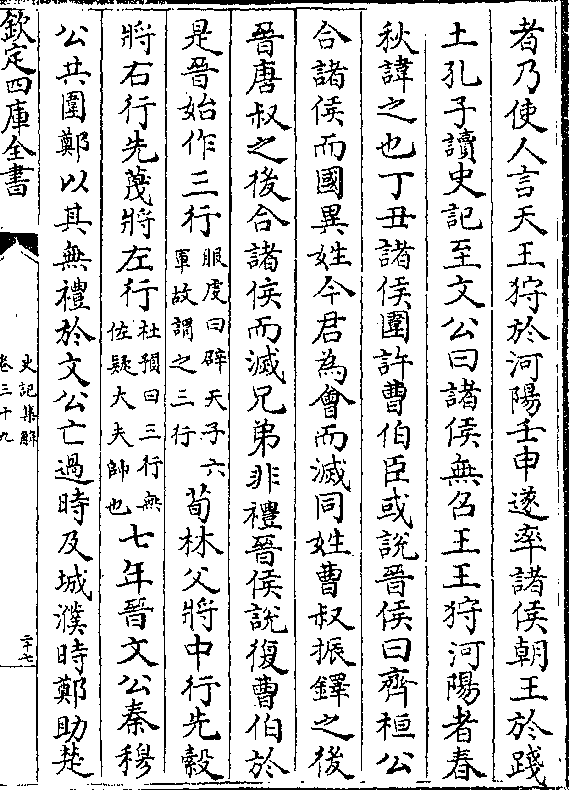 者乃使人言天王狩於河陽壬申遂率諸侯朝王於踐
土孔子讀史記至文公曰諸侯無召王王狩河陽者春
秋諱之也丁丑諸侯圍許曹伯臣或說晉侯曰齊桓公
合諸侯而國異姓今君為會而滅同姓曹叔振鐸之後
晉唐叔之後合諸侯而滅兄弟非禮晉侯說復曹伯於
是晉始作三行服虔曰辟天子六軍故謂之三行荀林父將中行先縠
將右行先蔑將左行杜預曰三行無佐疑大夫帥也七年晉文公秦穆
公共圍鄭以其無禮於文公亡過時及城濮時鄭助楚
欽定四庫全書
史記集解
卷三十九
二十七